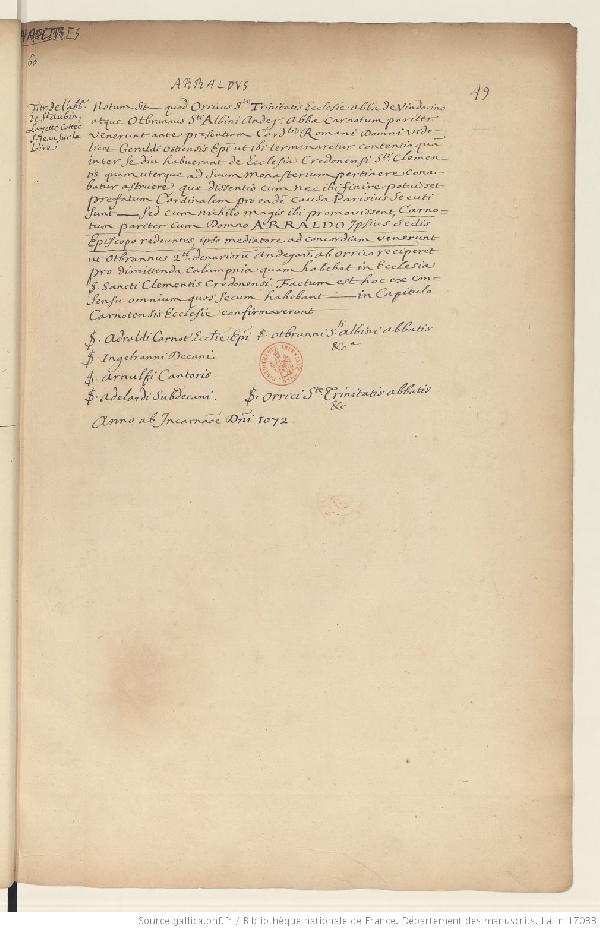 60
49
ARRALDVS
Titr. de l'abb.
de St Aubin
Layette cottée
Loire
Notum sit quod Orricus Ste Trinitatis Ecclesie abba de Vindocino
atque Otbrannus Sti Albini Andeg. abba Carnotum pariter
venerunt ante presentiam Cardlis Romani domni vide-
licet Geraldi ostiensis Epi ut ibi terminaretur contentio qua
inter se diu habuerant de Ecclesia Credonensi Sti Clemen-
tis quam uterque ad suum Monasterium pertinere cona-
batur astruere que dissentio cum nec ibi finire potuisset
prefatum Cardinalem pro eadē causa Parisius secuti
sunt — sed cum nichilo magis ibi promovissent, Carno-
tum pariter cum Domno ARRALDO Ipsius sedis
Episcopo redeuntes ipso mediatore ad concordiam venerunt
ut Otbrannus 2 denariorū Andegav. ab Orrico reciperet
pro dimittenda Calumpnia quam habebat in Ecclesia
S. Sancti Clementis Credonensi. Factum est hoc ex con-
sensu omnium quos secum habebant — in Capitulo
Carnotensis Ecclesie confirmaverunt
S. Adraldi Carnot Ecclie Epi S. otbranni Sti albini abbatis
&ca
S. Ingelranni Decani
S. Arnulfi Cantoris
S. Adelardi Subdecani. S. Orrici Ste Trinitatis abbatis
&c
Anno ab Incarnaōe Dni 1072
Source gallica.bnf.fr / Bibliothèque nationale de France. Département des manuscrits. Latin 17033